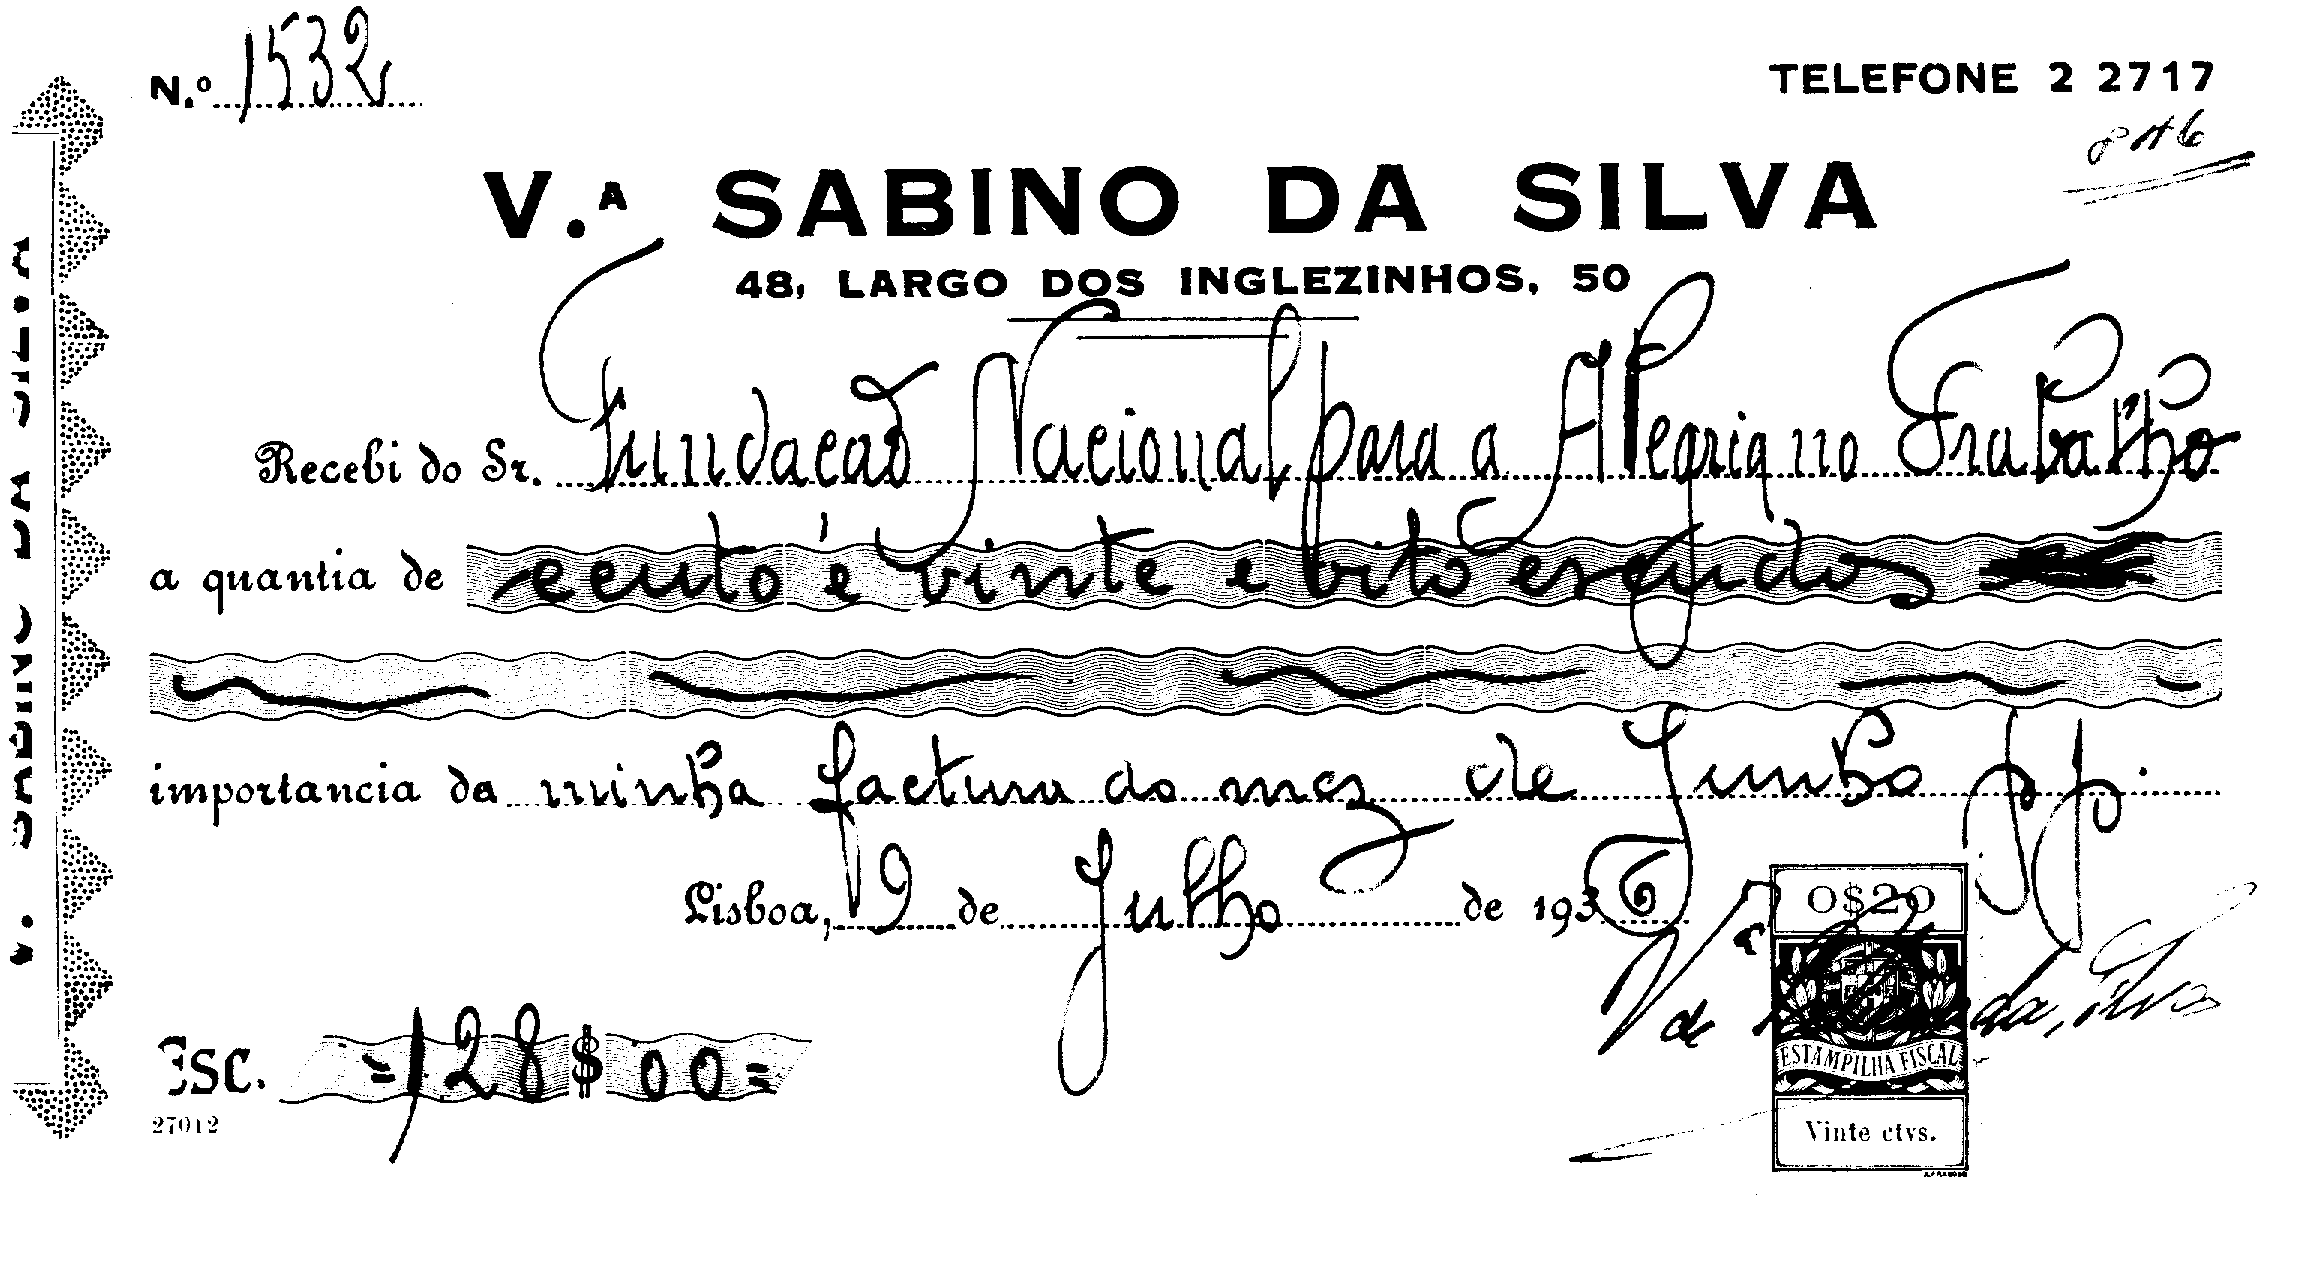 N.º 1532
TELEFONE 2 2717
V.ª SABINO DA SILVA
48, LARGO DOS INGLEZINHOS, 50
Recebi do Sr. Fundacaõ Nacional para a Alegria no Trabalho
a quantia de cento e vinte e oito escudos
importancia da minha factura do mez de Junho pp.
Lisboa, 9 de Julho de 1936
0$20
V.ª de Sabino da Silva
ESTAMPILHA FISCAL
Esc. =128$00=
27012
Vinte ctvs.
V. SABINO DA SILVA